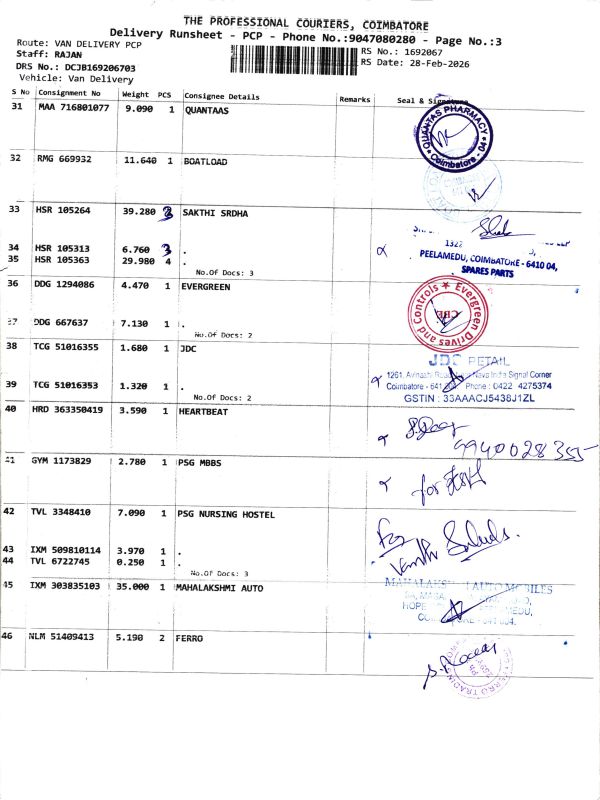 THE PROFESSIONAL COURIERS, COIMBATORE
Delivery Runsheet - PCP - Phone No.:9047080280 - Page No.:3
Route: VAN DELIVERY PCP
Staff: RAJAN
DRS No.: DCJB169206703
Vehicle: Van Delivery
RS No.: 1692067
RS Date: 28-Feb-2026
S No Consignment No Weight PCS Consignee Details Remarks Seal & Signature
31 MAA 716801077 9.090 1 QUANTAAS
QUANTAS PHARMACY
Coimbatore - 04
32 RMG 669932 11.640 1 BOATLOAD
33 HSR 105264 39.280 3 SAKTHI SRDHA
34 HSR 105313 6.760 3 .
35 HSR 105363 29.980 4 .
No.Of Docs: 3
1322
PEELAMEDU, COIMBATORE - 6410 04,
SPARES PARTS
36 DDG 1294086 4.470 1 EVERGREEN
37 DDG 667637 7.130 1 .
No.Of Docs: 2
Evergreen Drives and Controls
CBE
38 TCG 51016355 1.680 1 JDC
39 TCG 51016353 1.320 1 .
No.Of Docs: 2
JDC RETAIL
1261, Avinashi Road, Nava India Signal Corner
Coimbatore - 641 Phone : 0422 4275374
GSTIN : 33AAACJ5438J1ZL
40 HRD 363350419 3.590 1 HEARTBEAT
9940028355
41 GYM 1173829 2.780 1 PSG MBBS
for
42 TVL 3348410 7.090 1 PSG NURSING HOSTEL
43 IXM 509810114 3.970 1 .
44 TVL 6722745 0.250 1 .
No.Of Docs: 3
For
45 IXM 303835103 35.000 1 MAHALAKSHMI AUTO
MAHALAKSHMI AUTOMOBILES
46 NLM 51409413 5.190 2 FERRO